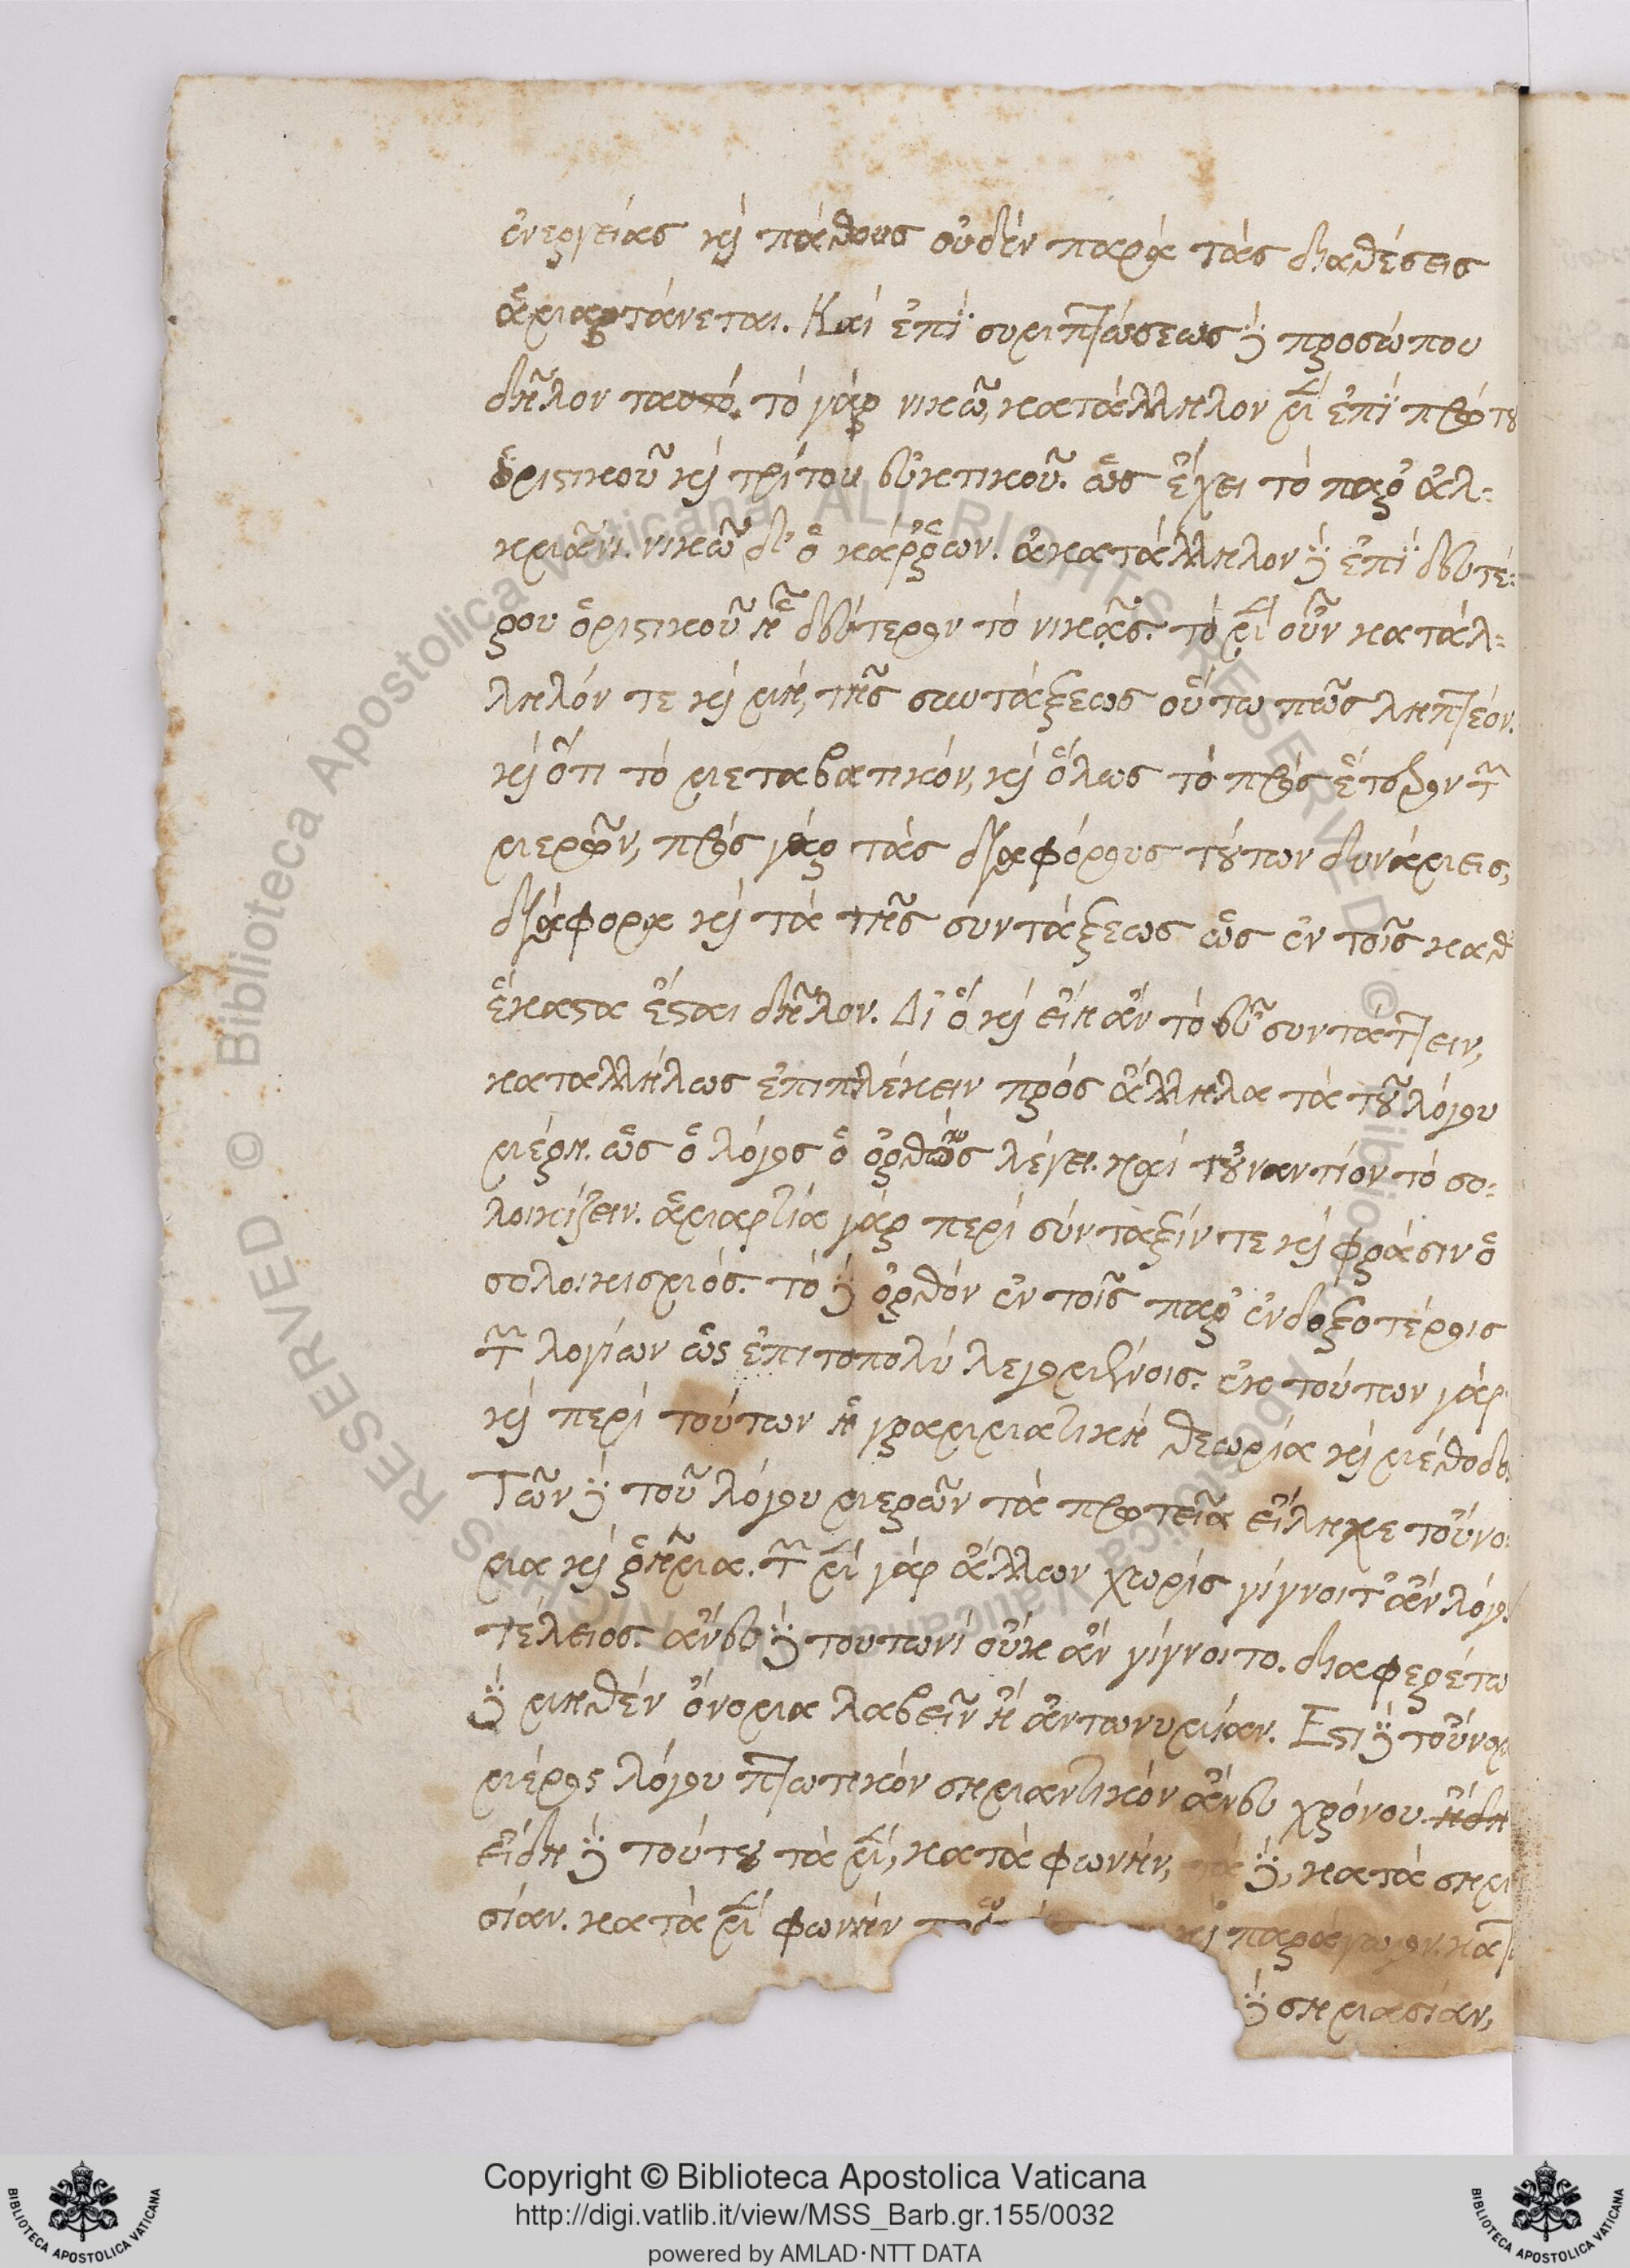 ἐνεργείας καὶ πάθους οὐδὲν παρὰ τὰς διαθέσεις
ἁμαρτάνεται. Καὶ ἐπὶ συμπτώσεως δὲ προσώπου
δῆλον ταυτό. τὸ γὰρ νικῶ, κατάλληλον μὲν ἐπὶ πρώτου
ὁριστικοῦ καὶ τρίτου εὐκτικοῦ. ὡς ἔχει τὸ παρ' ἀλ-
κμᾶνι. νικῶ δ' ὁ κάρρων. ἀκατάλληλον δὲ ἐπὶ δευτέ-
ρου ὁριστικοῦ δεύτερον τὸ νικᾷς. τὸ μὲν οὖν κατάλ-
ληλόν τε καὶ μὴ, τῆς συντάξεως οὕτω πως ληπτέον.
καὶ ὅτι τὸ μεταβατικόν, καὶ ὅλως τὸ πρὸς ἕτερον τῶν
μερῶν, πρὸς γὰρ τὰς διαφόρους τούτων δυνάμεις,
διάφορα καὶ τὰ τῆς συντάξεως ὡς ἐν τοῖς καθ'
ἕκαστα ἔσται δῆλον. Δι' ὃ καὶ εἴη ἂν τὸ εὖ συντάττειν,
καταλλήλως ἐπιπλέκειν πρὸς ἄλληλα τὰ τοῦ λόγου
μέρη. ὡς ὁ λόγος ὁ ὀρθῶς λέγει. καὶ τοὐναντίον τὸ σο-
λοικίζειν. ἁμαρτία γὰρ περὶ σύνταξίν τε καὶ φράσιν ὁ
σολοικισμός. τὸ δὲ ὀρθὸν ἐν τοῖς παρ' ἐνδοξοτέροις
τῶν λογίων ὡς ἐπιτοπολὺ λεγομένοις. ἐκ τούτων γὰρ
καὶ περὶ τούτων ἡ γραμματικὴ θεωρία καὶ μέθοδο.
Τῶν δὲ τοῦ λόγου μερῶν τὰ πρωτεῖα εἴληχε τοὔνο-
μα καὶ ῥῆμα. τῶν μὲν γὰρ ἄλλων χωρὶς γίγνοιτ' ἂν λόγ.
τέλειος. ἄνευ δὲ τουτωνὶ οὐκ ἂν γίγνοιτο. διαφερέτω
δὲ μηθὲν ὄνομα λαβεῖν ἢ ἀντωνυμίαν. Ἔστι δὲ τοὔνομ
μέρος λόγου πτωτικὸν σημαντικὸν ἄνευ χρόνου. ἤδη
εἴδη δὲ τούτου τὰ μὲν, κατὰ φωνὴν, τὰ δὲ, κατὰ σημ
σίαν. κατὰ μὲν φωνὴν καὶ παράγωγον.
δὲ σημασίαν,
Copyright © Biblioteca Apostolica Vaticana
http://digi.vatlib.it/view/MSS_Barb.gr.155/0032
powered by AMLAD·NTT DATA